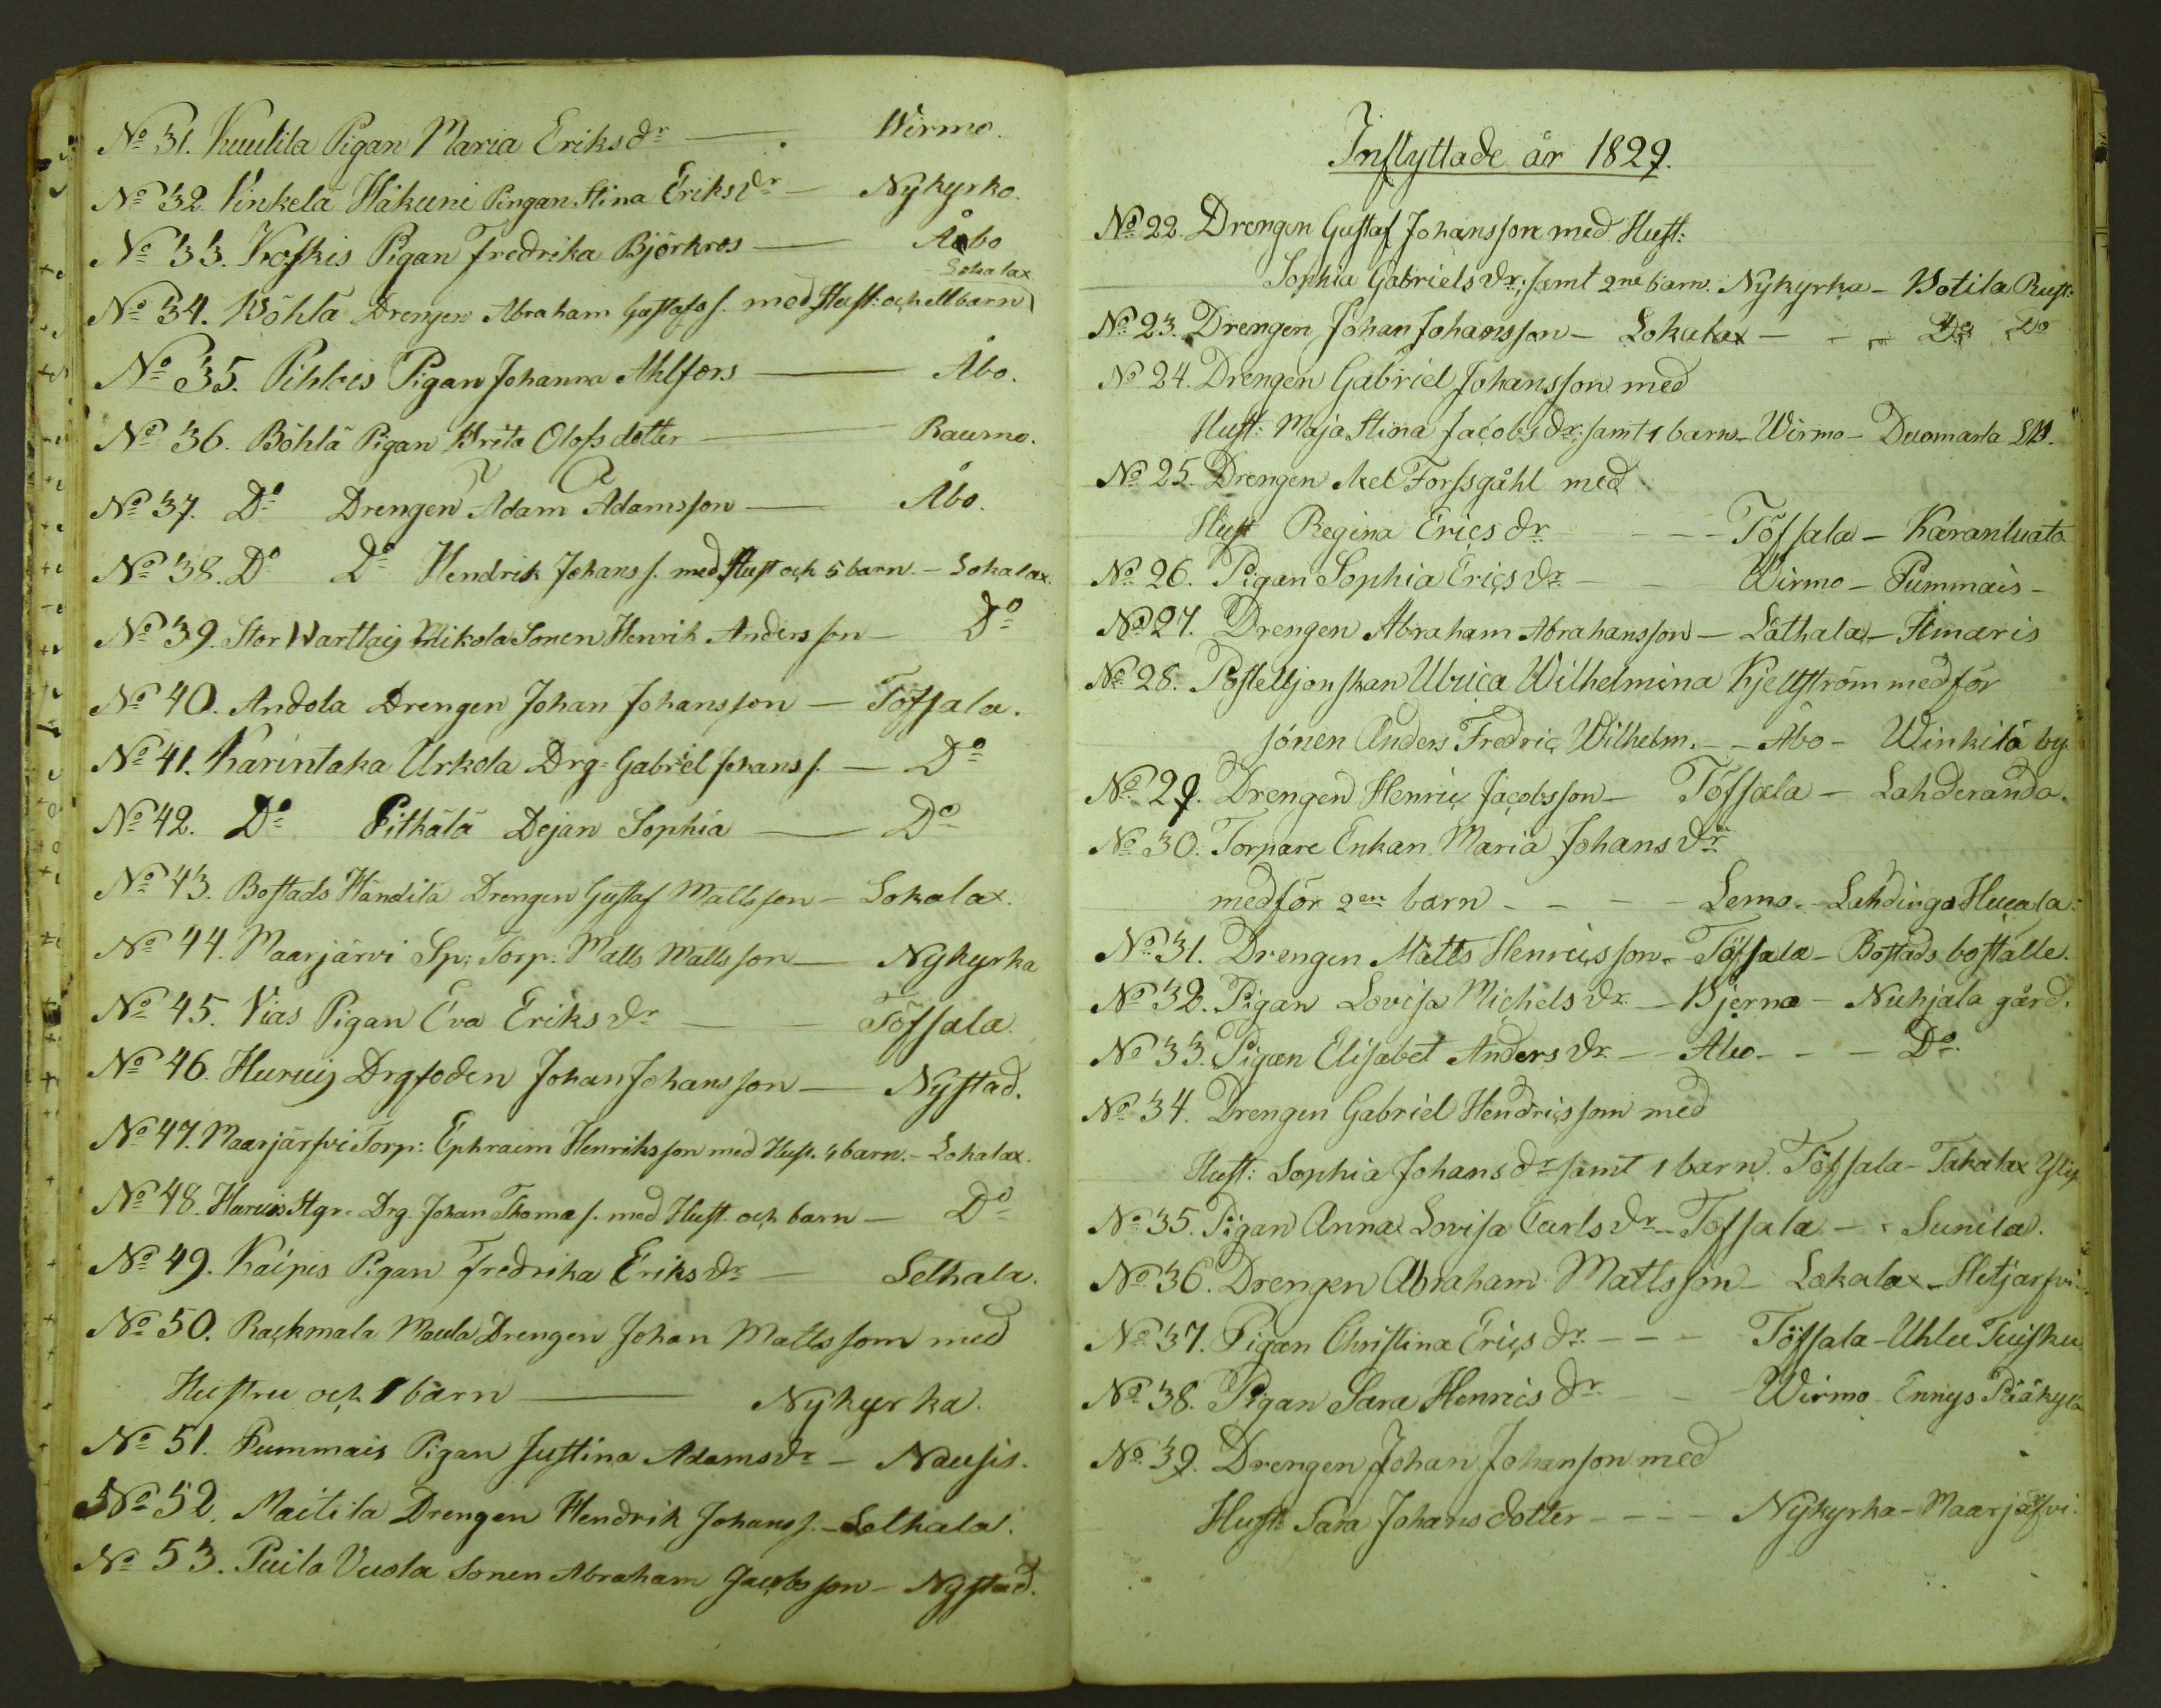 No 31. Kuutila Pigan Maria Eriksdr — Wirmo.
No 32. Vinkelä Häkuni Pingan Stina Eriksdr — Nykyrko.
No 33. Koskis Pigan Fredrika Björkros — Åbo
Lokalax
No 34. Böhlä Drengen Abraham Gustafss. med Hust: och ett barn
No 35. Pihlvis Pigan Johanna Ahlfors — Åbo.
No 36. Böhlä Pigan Brita Olofsdotter — Raumo.
No 37. Do Drengen Adam Adamsson — Åbo.
No 38. Do Do Hendrik Johanss. med Hust och 5 barn. — Lokalax.
No 39. Stor Wartlaij Mikola Sonen Henrik Andersson — Do
No 40. Andola Drengen Johan Johansson — Töfsala.
No 41. Karintaka Urkola Drg: Gabriel Johanss. — Do
No 42. Do Pithälä Dejan Sophia — Do
No 43. Bostads Händilä Drengen Gustaf Mattsson — Lokalax.
No 44. Maarjärvi Sp: Torp: Matts Mattsson — Nykyrka
No 45. Vias Pigan Eva Eriksdr — Töfsala.
No 46. Huruij Drgsoden Johan Johansson — Nystad.
No 47. Maarjärfvi Torp: Ephraim Henriksson med Hust. 4 barn. — Lokalax.
No 48. Haruis Stgr. Drg. Johan Thomas. med Hust. och barn — Do
No 49. Kaipis Pigan Fredrika Eriksdr — Lethala.
No 50. Rackmala Maula Drengen Johan Mattssom med
Hustru och 1 barn — Nykyrka.
No 51. Pummais Pigan Justina Adamsdr — Nousis.
No 52. Maitila Drengen Hendrik Johanss. — Lethala.
No 53. Puila Vuola Sonen Abraham Jacobsson — Nystad.
Inflyttade år 1829.
No 22. Drengen Gustaf Johansson med Hust:
Sophia Gabrielsdr: samt 2ne barn. Nykyrka — Botila Rust:
No 23. Drengen Johan Johansson — Lokalax — Do Do
No 24. Drengen Gabriel Johansson med
Hust: Maja Stina Jacobsdr: samt 1 barn — Wirmo — Duomarla
No 25. Drengen Axel Forssgåhl med
Hust Regina Ericsdr. — Töfsala — Karanluato
No 26. Pigan Sophia Ericsdr. — Wirmo — Pummais —
No 27. Drengen Abraham Abrahansson — Läthala — Himaris
No 28. Postelljonskan Ulrica Wilhelmina Kjellström medför
sonen Anders Fredric Wilhelm. — Åbo — Winkilä by.
No 29. Drengen Henric Jacobsson — Töfsala — Lahderanda.
No 30. Torpare Enkan Maria Johansdr
medför 2en barn — Lemo. — Lahdinga Hucala.
No 31. Drengen Matts Henricsson — Töfsala — Bostads boställe.
No 32. Pigan Lovisa Michelsdr. — Bjerno — Nuhjala gård.
No 33. Pigan Elisabet Andersdr. — Åbo — Do.
No 34. Drengen Gabriel Hendricsson med
Hust: Sophia Johansdr samt 1 barn. Töfsala — Takalax
No 35. Pigan Anna Lovisa Carlsdr — Töfsala — Sunila.
No 36. Drengen Abraham Mattsson — Lokalax — Hetjarfvi
No 37. Pigan Christina Ericsdr. — Töfsala — Uhlu Tuisku
No 38. Pigan Sara Henricsdr. — Wirmo — Ennys Pääkylä
No 39. Drengen Johan Johanson med
Hust: Sara Johansdotter — Nykyrka — Maarjärfvi.